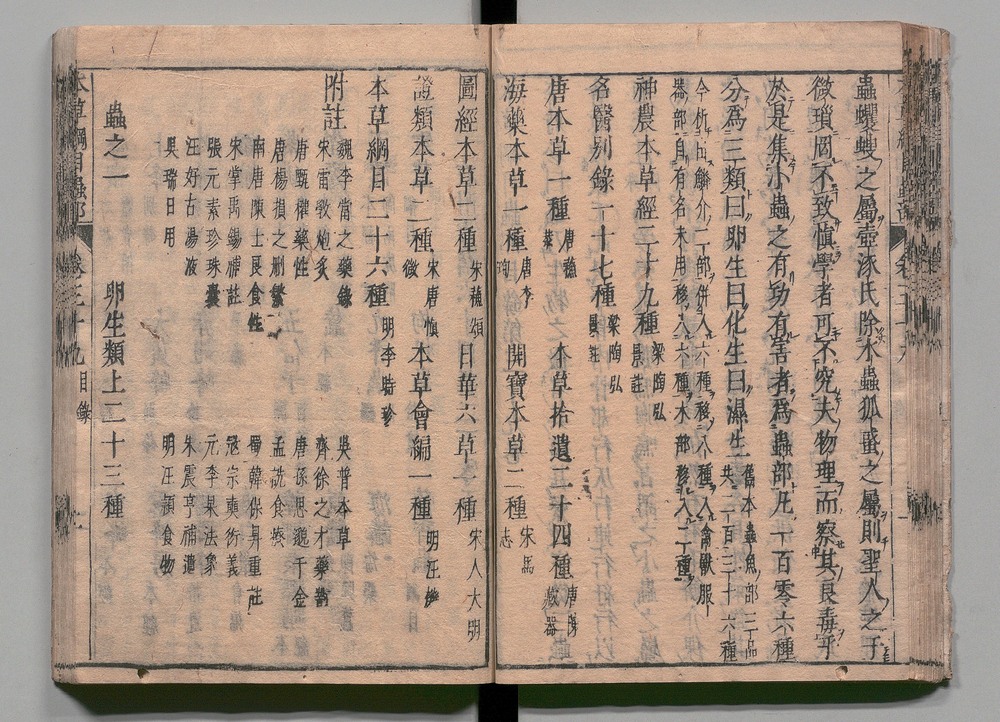 蟲蠼螋之屬壺涿氏除水蟲狐蜮之屬則聖人之于
微瑣罔不致慎學者可不究夫物理而察其良毒乎
於是集小蟲之有功有害者為蟲部凡一百零六種
分為三類曰卵生曰化生曰濕生 舊本蟲魚部三品共二百三十六種
今析出鱗介二部併入六種移八種入禽獸服
器部自有名未用移入六種木部移入二種
神農本草經二十九種 梁陶弘景註
名醫別錄一十七種 梁陶弘景註 本草拾遺二十四種 唐陳藏器
唐本草一種 唐蘇恭
海藥本草一種 唐李珣 開寶本草二種 宋馬志
圖經本草二種 宋蘇頌 日華本草一種 宋人大明
證類本草二種 宋唐慎微 本草會編一種 明汪機
本草綱目二十六種 明李時珍
附註
魏李當之藥錄 吳普本草
宋雷斅炮炙 齊徐之才藥對
唐甄權藥性 唐孫思邈千金
唐楊損之刪繁 孟詵食療
南唐陳士良食性 蜀韓保昇重註
宋掌禹錫補註 寇宗奭衍義
張元素珍珠囊 元李杲法象
汪好古湯液 朱震亨補遺
吳瑞日用 明汪穎食物
蟲之一 卵生類上二十三種
本草綱目蟲部 卷三十九目錄